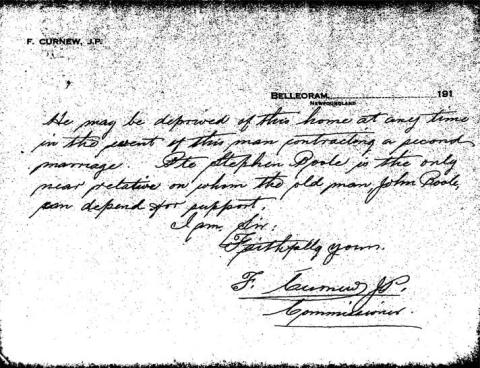 F. CURNEW, J.P.
BELLEORAM, 191
NEWFOUNDLAND
He may be deprived of this home at any time
in the event of this man contracting a second
marriage. Pte Stephen Poole is the only
near relative on whom the old man, John Poole,
can depend for support.
I am, Sir,
Faithfully yours.
F. Curnew J.P.
Commissioner.